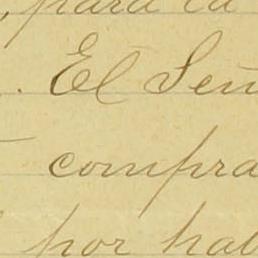 , para la
. El Señ
compra
por hab